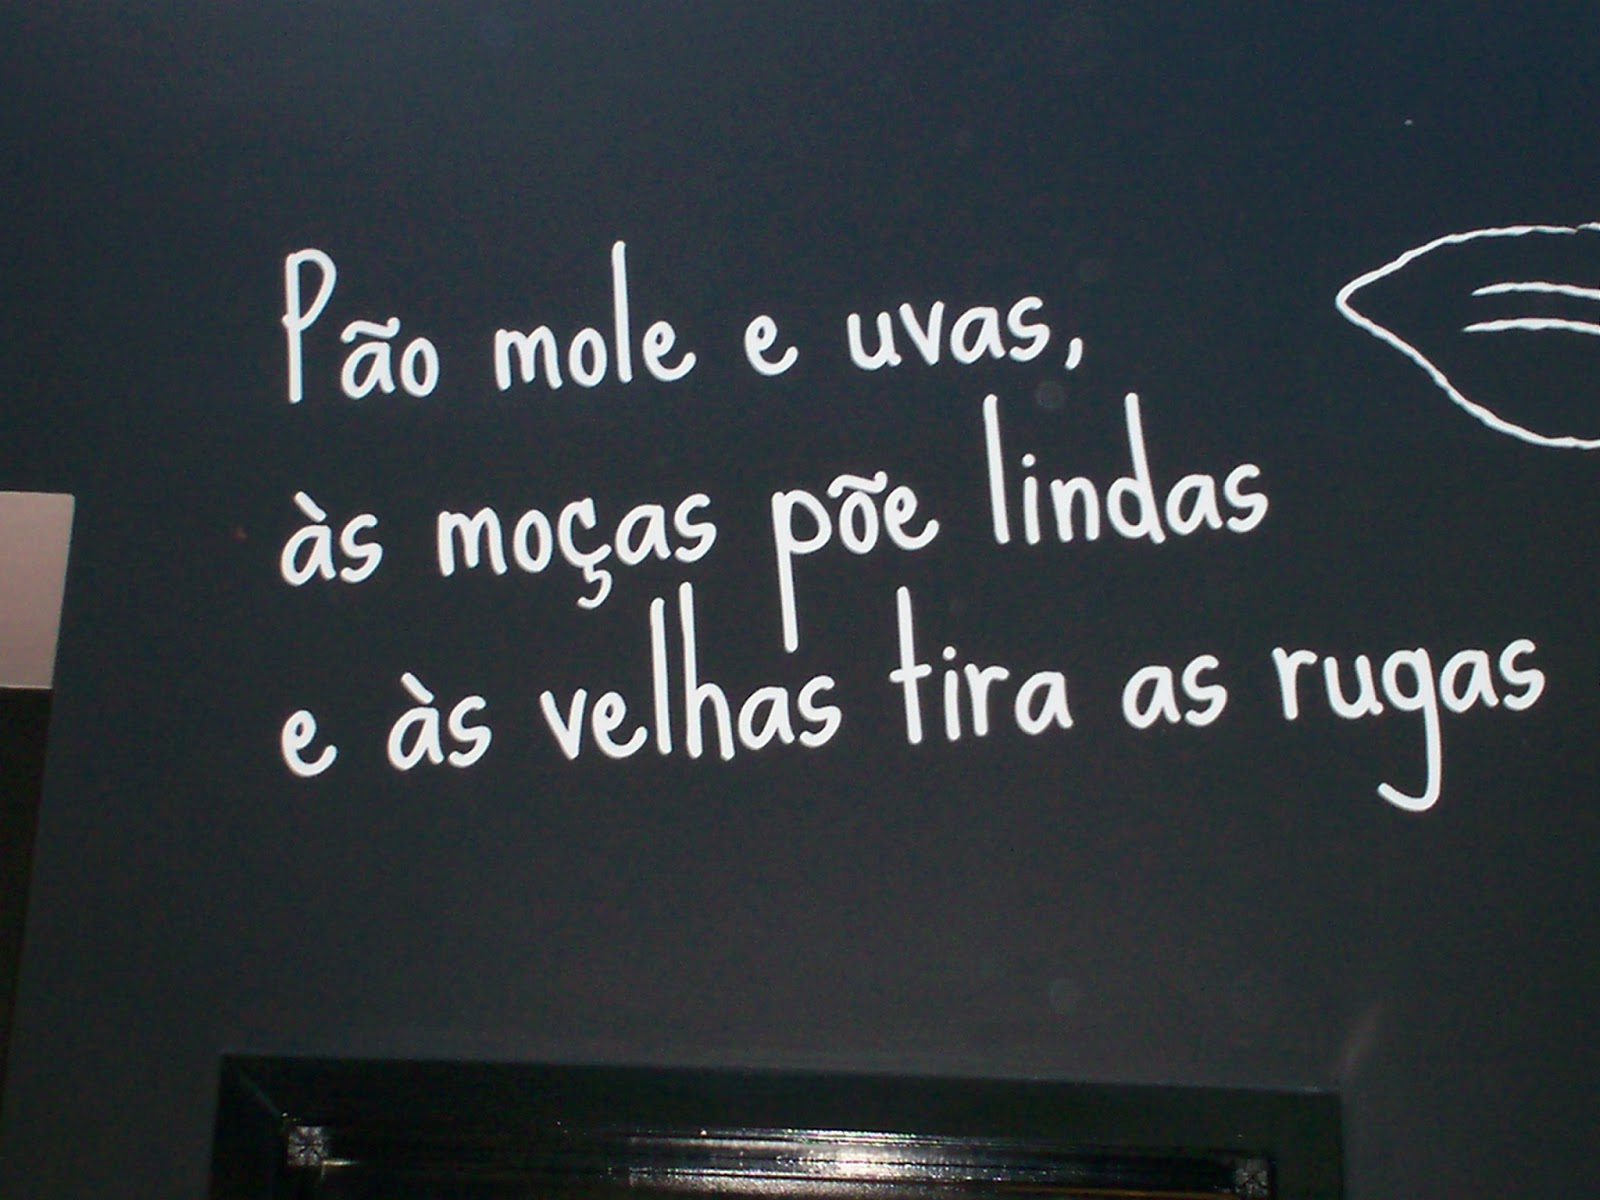 Pão mole e uvas,
às moças põe lindas
e às velhas tira as rugas